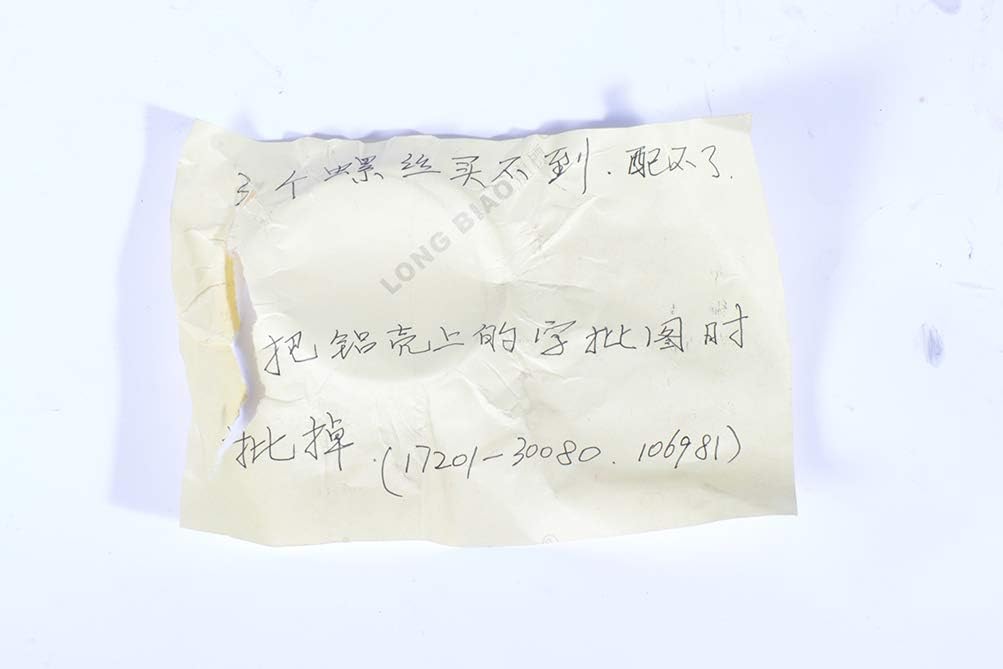 3个螺丝买不到.配不了.
LONG BIAO
把铝壳上的字批图时
批掉.(17201-30080.106981)